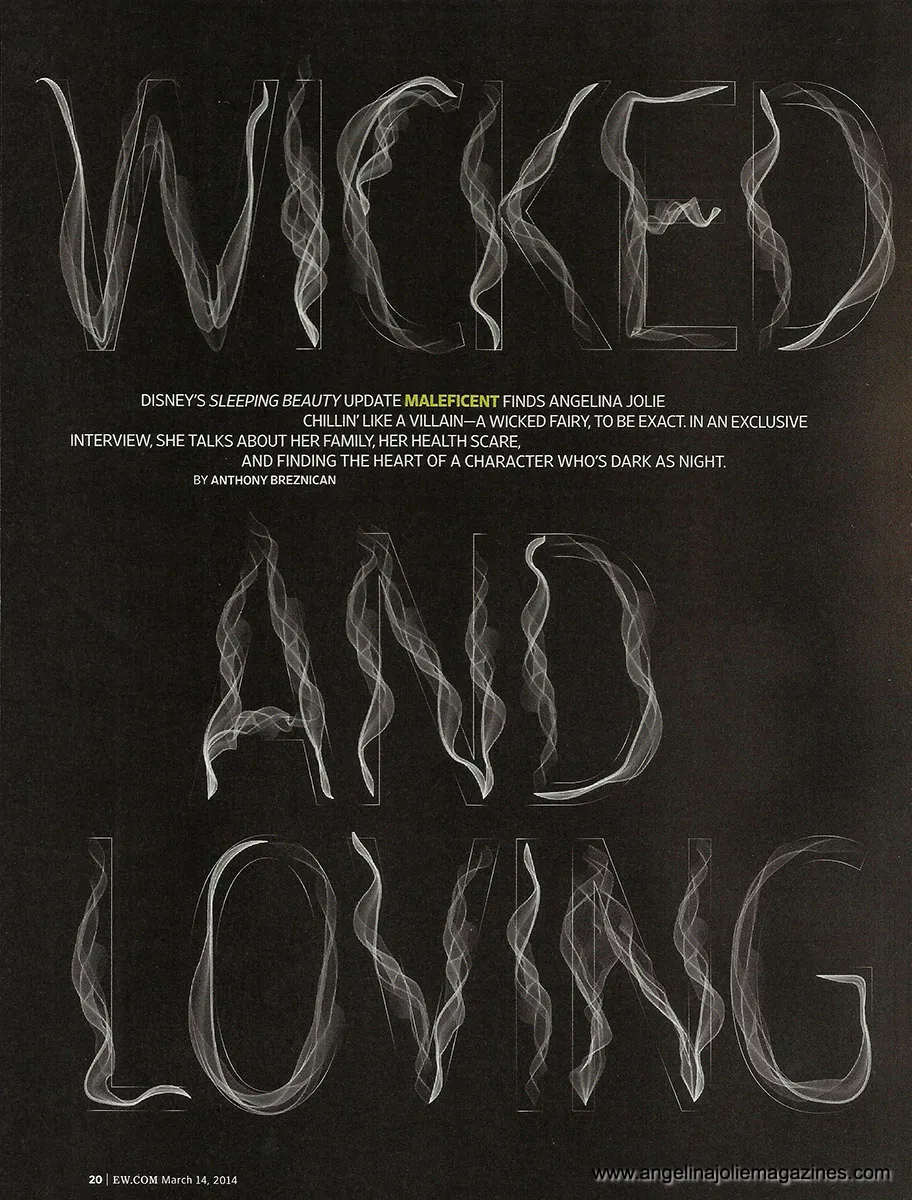 WICKED
DISNEY'S SLEEPING BEAUTY UPDATE MALEFICENT FINDS ANGELINA JOLIE
CHILLIN' LIKE A VILLAIN—A WICKED FAIRY, TO BE EXACT. IN AN EXCLUSIVE
INTERVIEW, SHE TALKS ABOUT HER FAMILY, HER HEALTH SCARE,
AND FINDING THE HEART OF A CHARACTER WHO'S DARK AS NIGHT.
BY ANTHONY BREZNICAN
AND
LOVING
20 | EW.COM March 14, 2014
www.angelinajoliemagazines.com